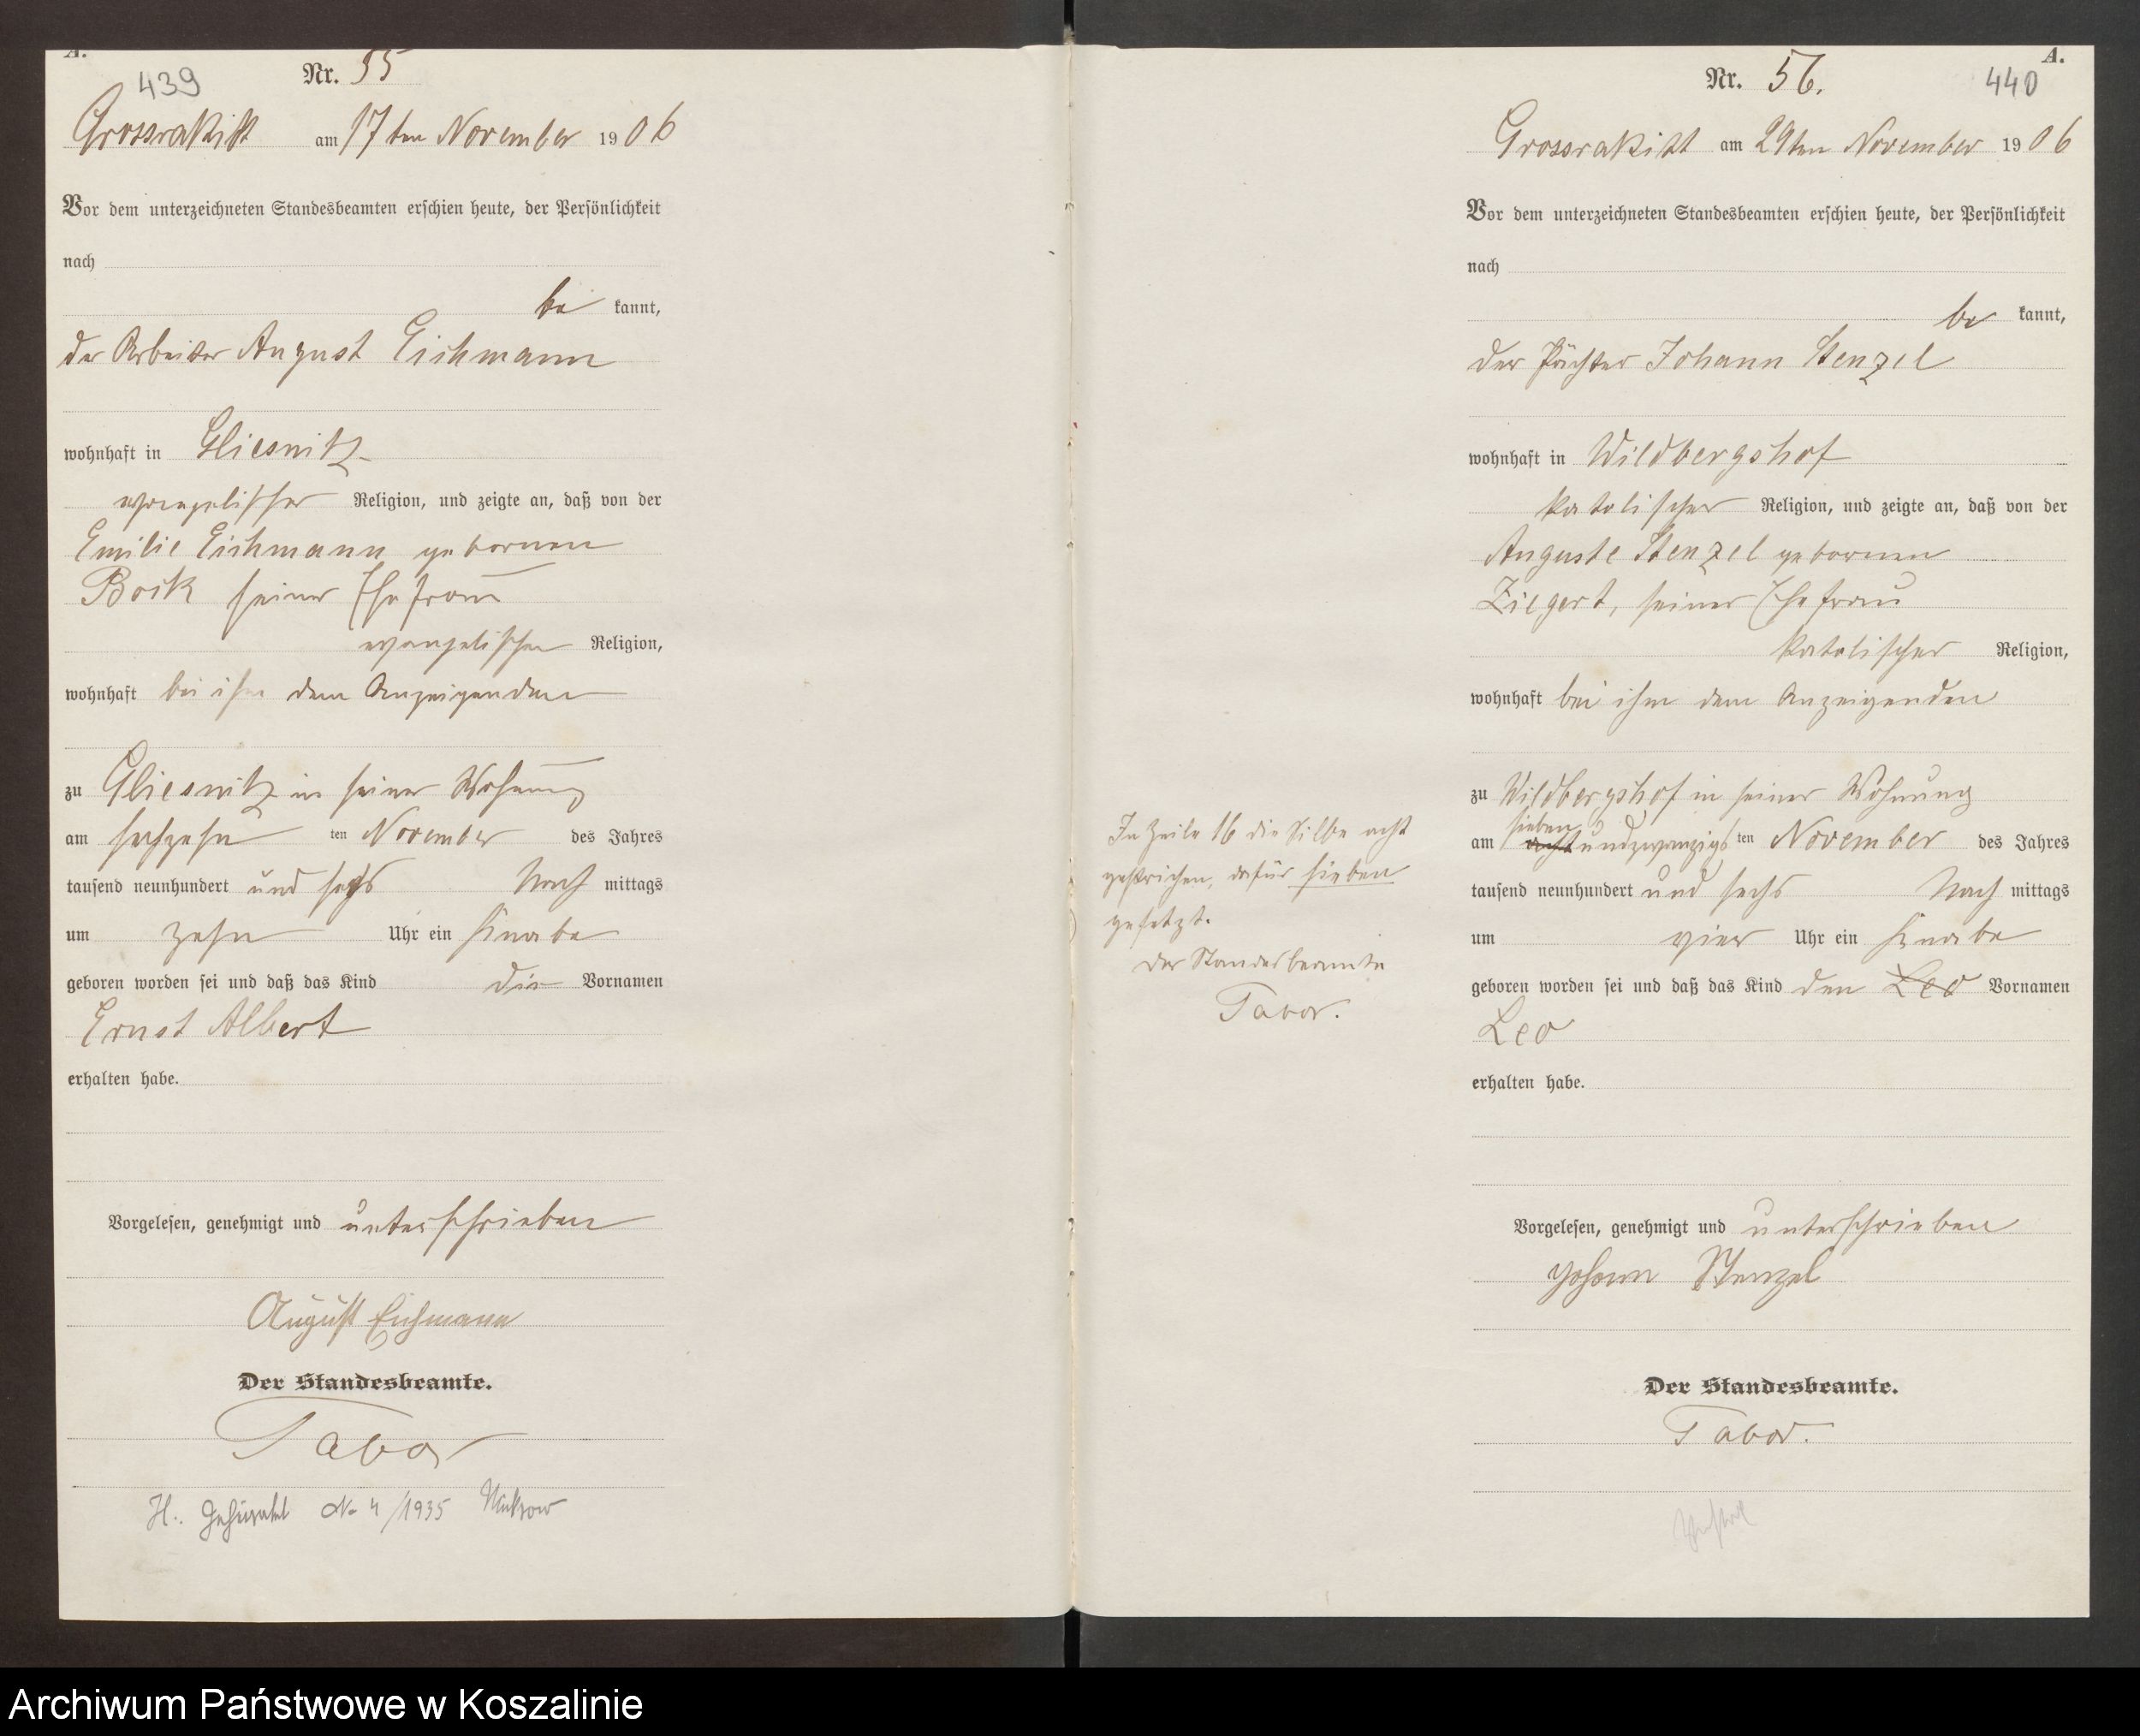 A.
439
Nr. 55
Grossrakitt am 17ten November 1906
Vor dem unterzeichneten Standesbeamten erschien heute, der Persönlichkeit
nach
be kannt,
der Arbeiter August Eichmann
wohnhaft in Gliesnitz
evangelischer Religion, und zeigte an, daß von der
Emilie Eichmann geborenen
Bock seiner Ehefrau
evangelischer Religion,
wohnhaft bei ihm dem Anzeigenden
zu Gliesnitz in seiner Wohnung
am sechzehn ten November des Jahres
tausend neunhundert und sechs Nach mittags
um zehn Uhr ein Knabe
geboren worden sei und daß das Kind die Vornamen
Ernst Albert
erhalten habe.
Vorgelesen, genehmigt und unterschrieben
August Eichmann
Der Standesbeamte.
Tabor
H.. Geheiratet No 4/1935 Muttrow
In Zeile 16 die Silbe acht
gestrichen, dafür sieben
gesetzt.
Der Standesbeamte
Tabor.
A.
Nr. 56. 440
Grossrakitt am 29ten November 1906
Vor dem unterzeichneten Standesbeamten erschien heute, der Persönlichkeit
nach
be kannt,
der Pächter Johann Stenzel
wohnhaft in Wildbergshof
katolischer Religion, und zeigte an, daß von der
Auguste Stenzel geborenen
Ziegert, seiner Ehefrau
katolischer Religion,
wohnhaft bei ihm dem Anzeigenden
zu Wildbergshof in seiner Wohnung
sieben
am achtundzwanzigsten November des Jahres
tausend neunhundert und sechs Nach mittags
um vier Uhr ein Knabe
geboren worden sei und daß das Kind den Leo Vornamen
Leo
erhalten habe.
Vorgelesen, genehmigt und unterschrieben
Johann Stenzel
Der Standesbeamte.
Tabor.
Archiwum Państwowe w Koszalinie